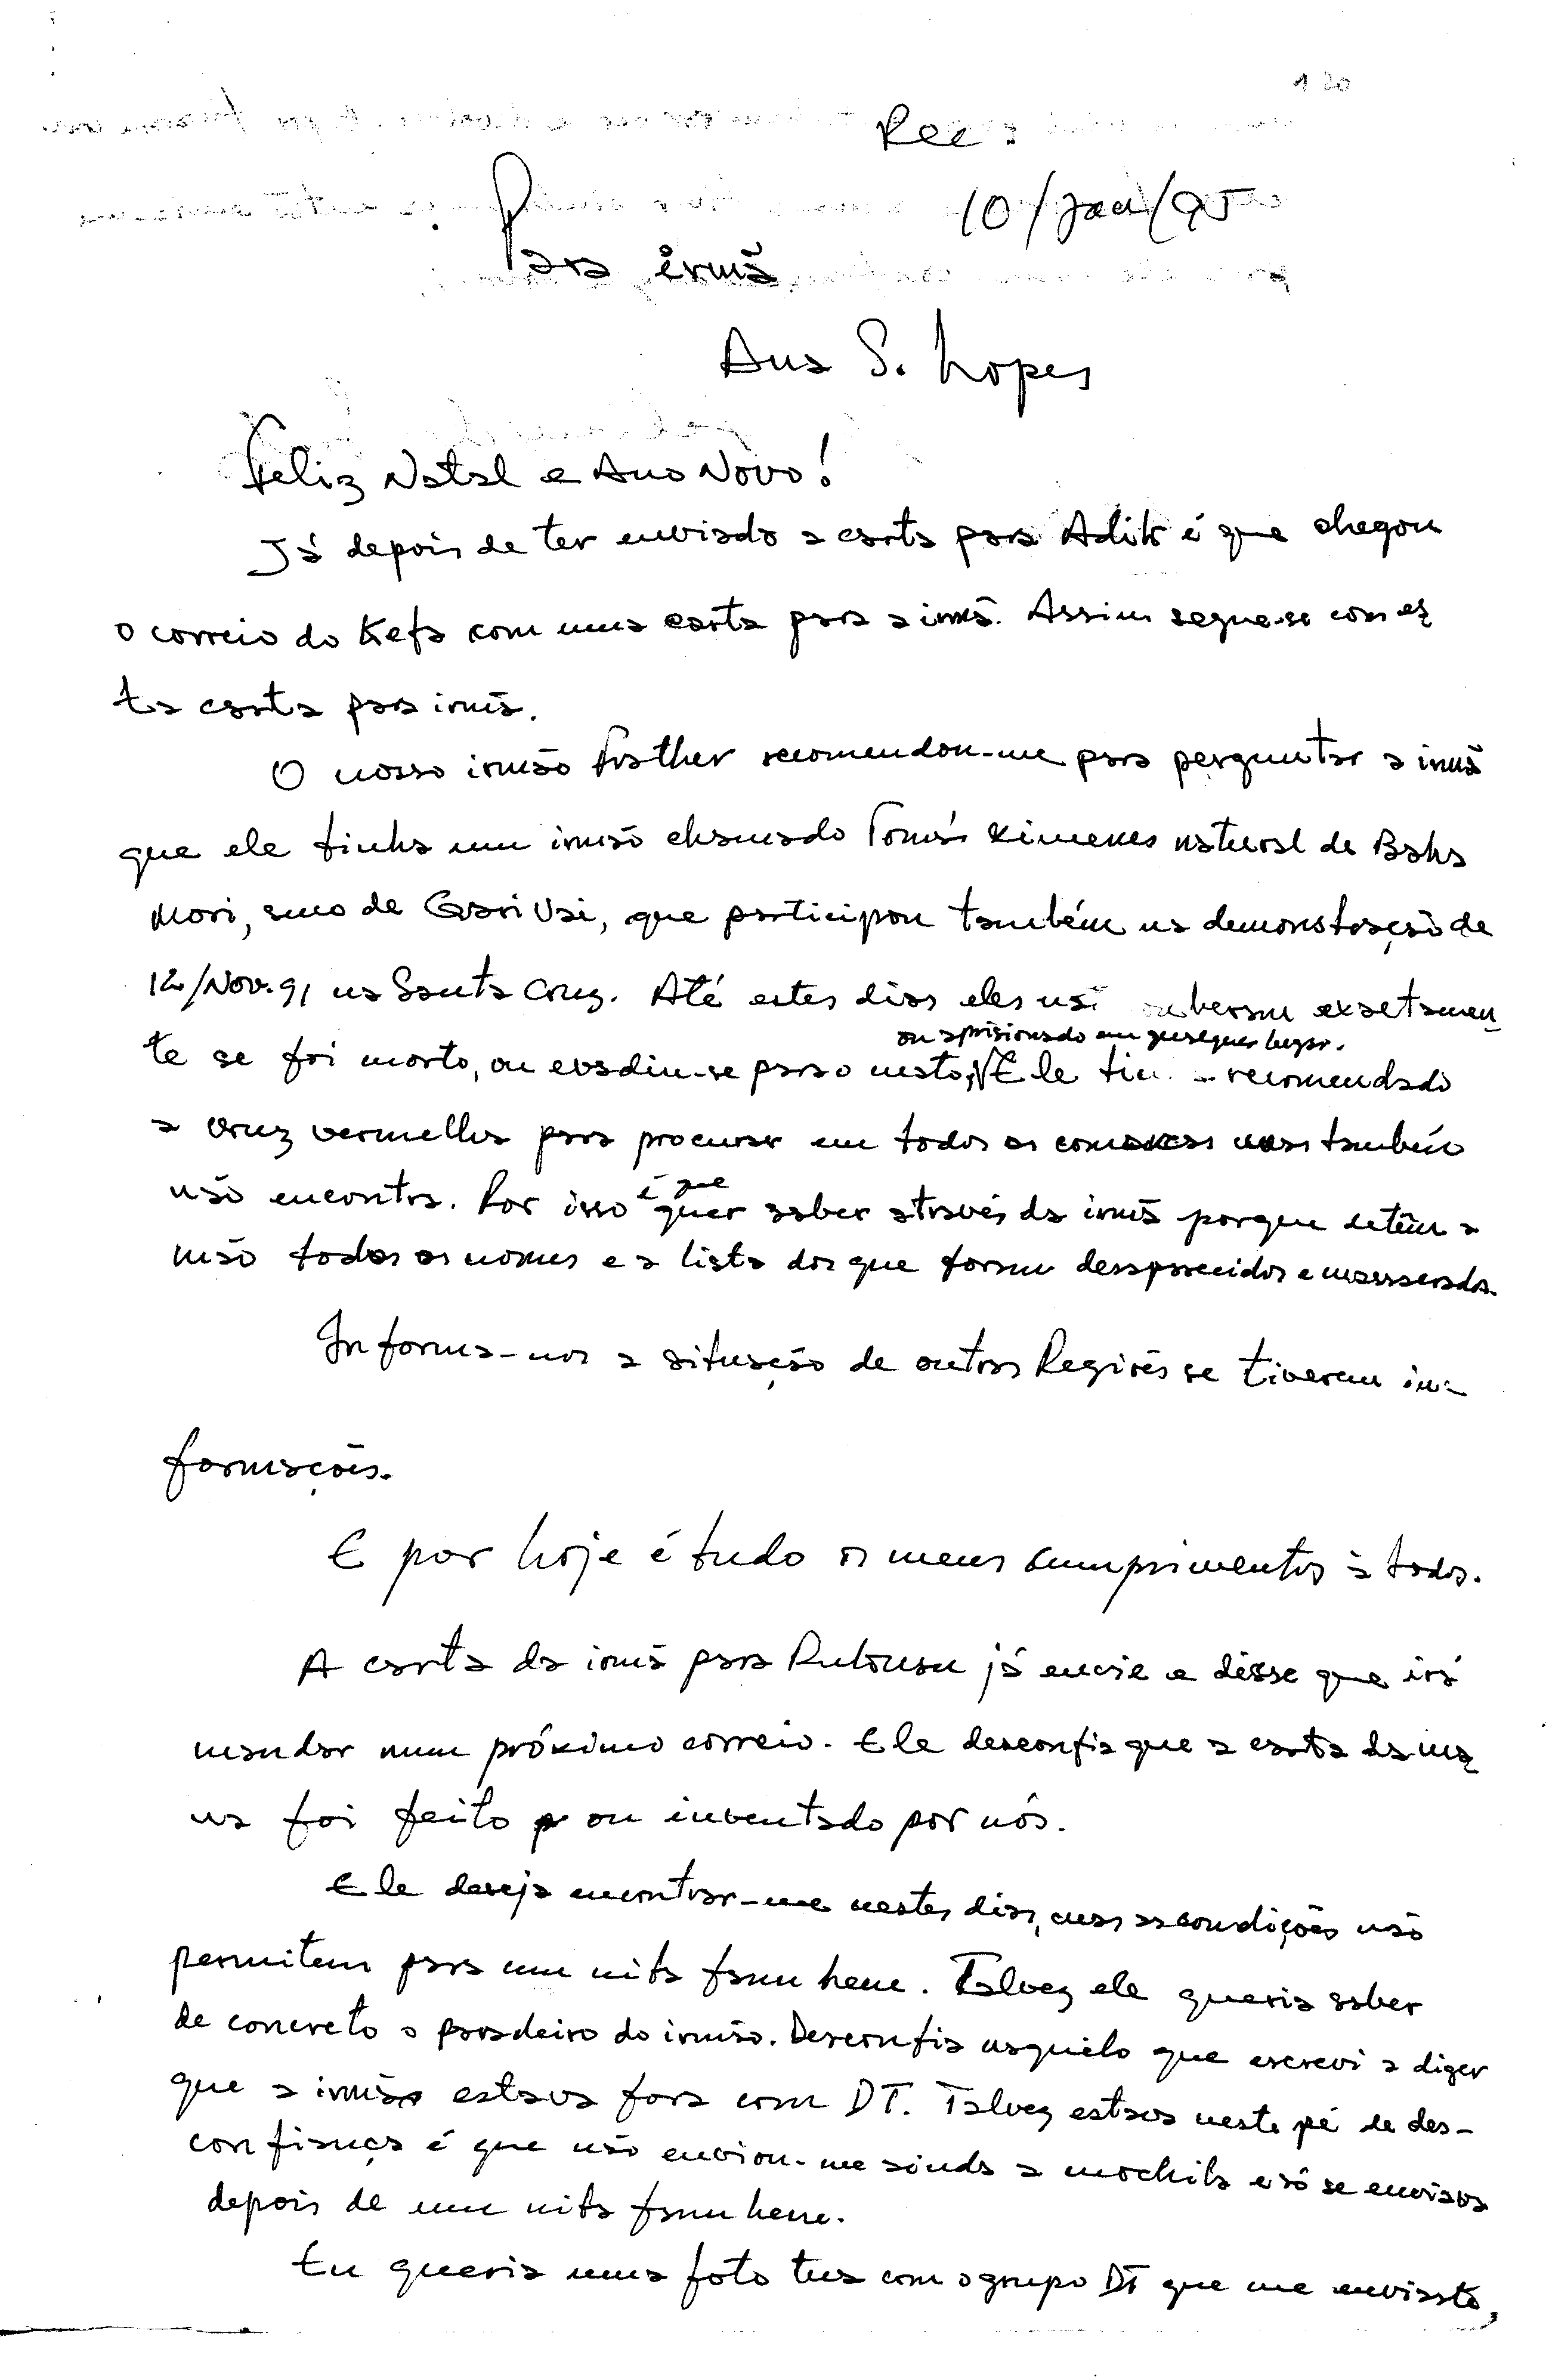 Rec:
10/Jan/95
Para irmã
Ana S. Lopes
Feliz Natal e Ano Novo!
Já depois de ter enviado a carta para Adik é que chegou
o correio do Kefa com uma carta para a irmã. Assim segue-se com es
ta carta para irmã.
O nosso irmão Frather recomendou-me para perguntar a irmã
que ele tinha um irmão chamado Tomás Ximenes natural de Baha
Mori, suco de Gari Vai, que participou também na demonstração de
12/Nov. 91 na Santa Cruz. Até estes dias eles não souberam exactamen
ou aprisionado em qualquer lugar.
te se foi morto, ou evadiu-se para o mato, Ele tinha recomendado
a cruz vermelha para procurar em todos as comarcas mas também
não encontra. Por isso é que quer saber através da irmã porque detêm a
mão todos os nomes e a lista dos que foram desaparecidos e massacrados.
Informa-nos a situação de outras Regiões se tiverem in-
formações.
E por hoje é tudo os meus cumprimentos à todos.
A carta da irmã para Rutousu já envie e désse que irá
mandar num próximo correio. Ele desconfia que a carta da ma
na foi feito p ou inventado por nós.
Ele deseja encontrar-me nestes dias, mas as condições não
permitem para um mita fam hene. Talvez ele queria saber
de concreto o paradeiro do irmão. Desconfia naquilo que escrevi a dizer
que a irmão estava fora com DT. Talvez estava neste pé de des-
confiança é que não enviou-me ainda a mochila e só se enviava
depois de um mita fam hene.
Eu queria uma foto tua com o grupo DT que me enviaste,